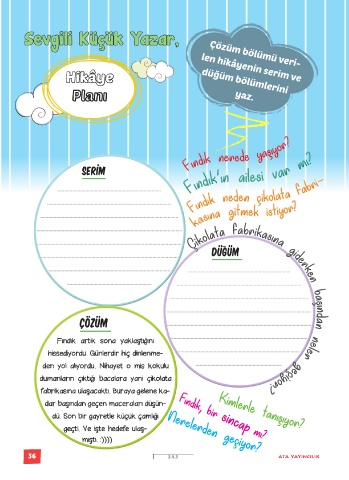 Sevgili Küçük Yazar,
Hikâye
Planı
Çözüm bölümü veri-
len hikâyenin serim ve
düğüm bölümlerini
yaz.
Fındık nerede yaşıyor?
Fındık'ın ailesi var mı?
Fındık neden çikolata fabri-
kasına gitmek istiyor?
Çikolata fabrikasına giderken başından neler geçiyor?
SERİM
DÜĞÜM
ÇÖZÜM
Fındık artık sona yaklaştığını
hissediyordu. Günlerdir hiç dinlenme-
den yol alıyordu. Nihayet o mis kokulu
dumanların çıktığı bacalara yani çikolata
fabrikasına ulaşacaktı. Buraya gelene ka-
dar başından geçen maceraları düşün-
dü. Son bir gayretle küçük çamlığı
geçti. Ve işte hedefe ulaş-
mıştı. :))))
Kimlerle tanışıyor?
Fındık, bir sincap mı?
Nerelerden geçiyor?
36
ATA YAYINCILIK